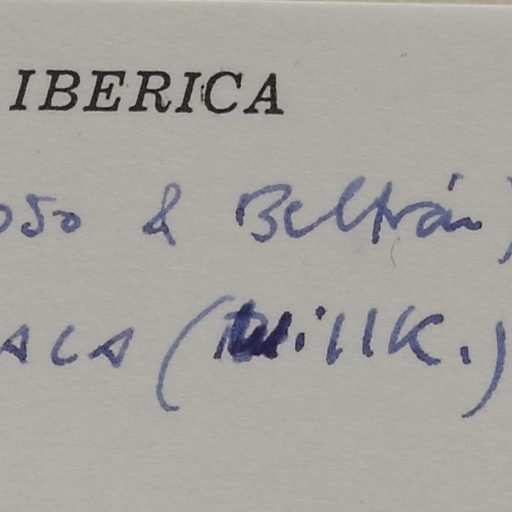 IBERICA
oso & Beltrán)
ACA (Willk.)